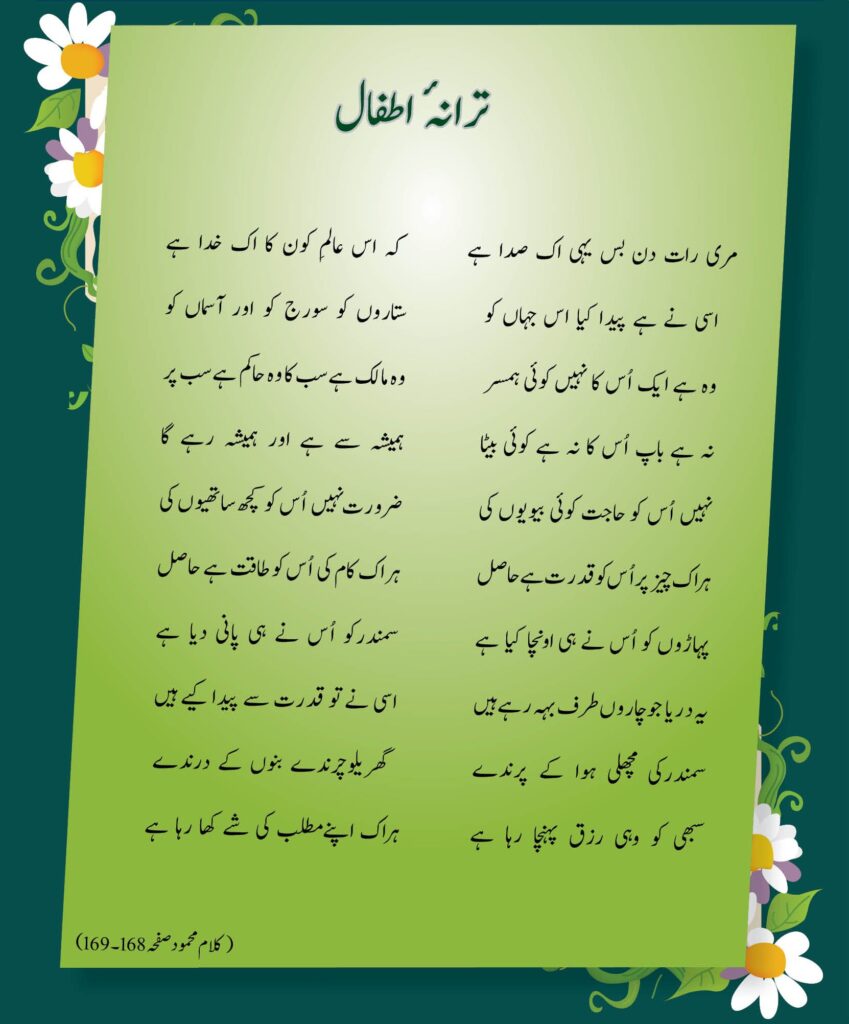 ترانۂ اطفال
مری رات دن بس یہی اک صدا ہے کہ اس عالمِ کون کا اک خدا ہے
اسی نے ہے پیدا کیا اس جہاں کو ستاروں کو سورج کو اور آسماں کو
وہ ہے ایک اُس کا نہیں کوئی ہمسر وہ مالک ہے سب کا وہ حاکم ہے سب پر
نہ ہے باپ اُس کا نہ ہے کوئی بیٹا ہمیشہ سے ہے اور ہمیشہ رہے گا
نہیں اُس کو حاجت کوئی بیویوں کی ضرورت نہیں اُس کو کچھ ساتھیوں کی
ہراک چیز پر اُس کو قدرت ہے حاصل ہراک کام کی اُس کو طاقت ہے حاصل
پہاڑوں کو اُس نے ہی اونچا کیا ہے سمندرکو اُس نے ہی پانی دیا ہے
یہ دریا جو چاروں طرف بہہ رہے ہیں اسی نے تو قدرت سے پیدا کیے ہیں
سمندرکی مچھلی ہوا کے پرندے گھریلو چرندے بنوں کے درندے
سبھی کو وہی رزق پہنچا رہا ہے ہراک اپنے مطلب کی شے کھا رہا ہے
(کلام محمود صفحہ 168۔169)